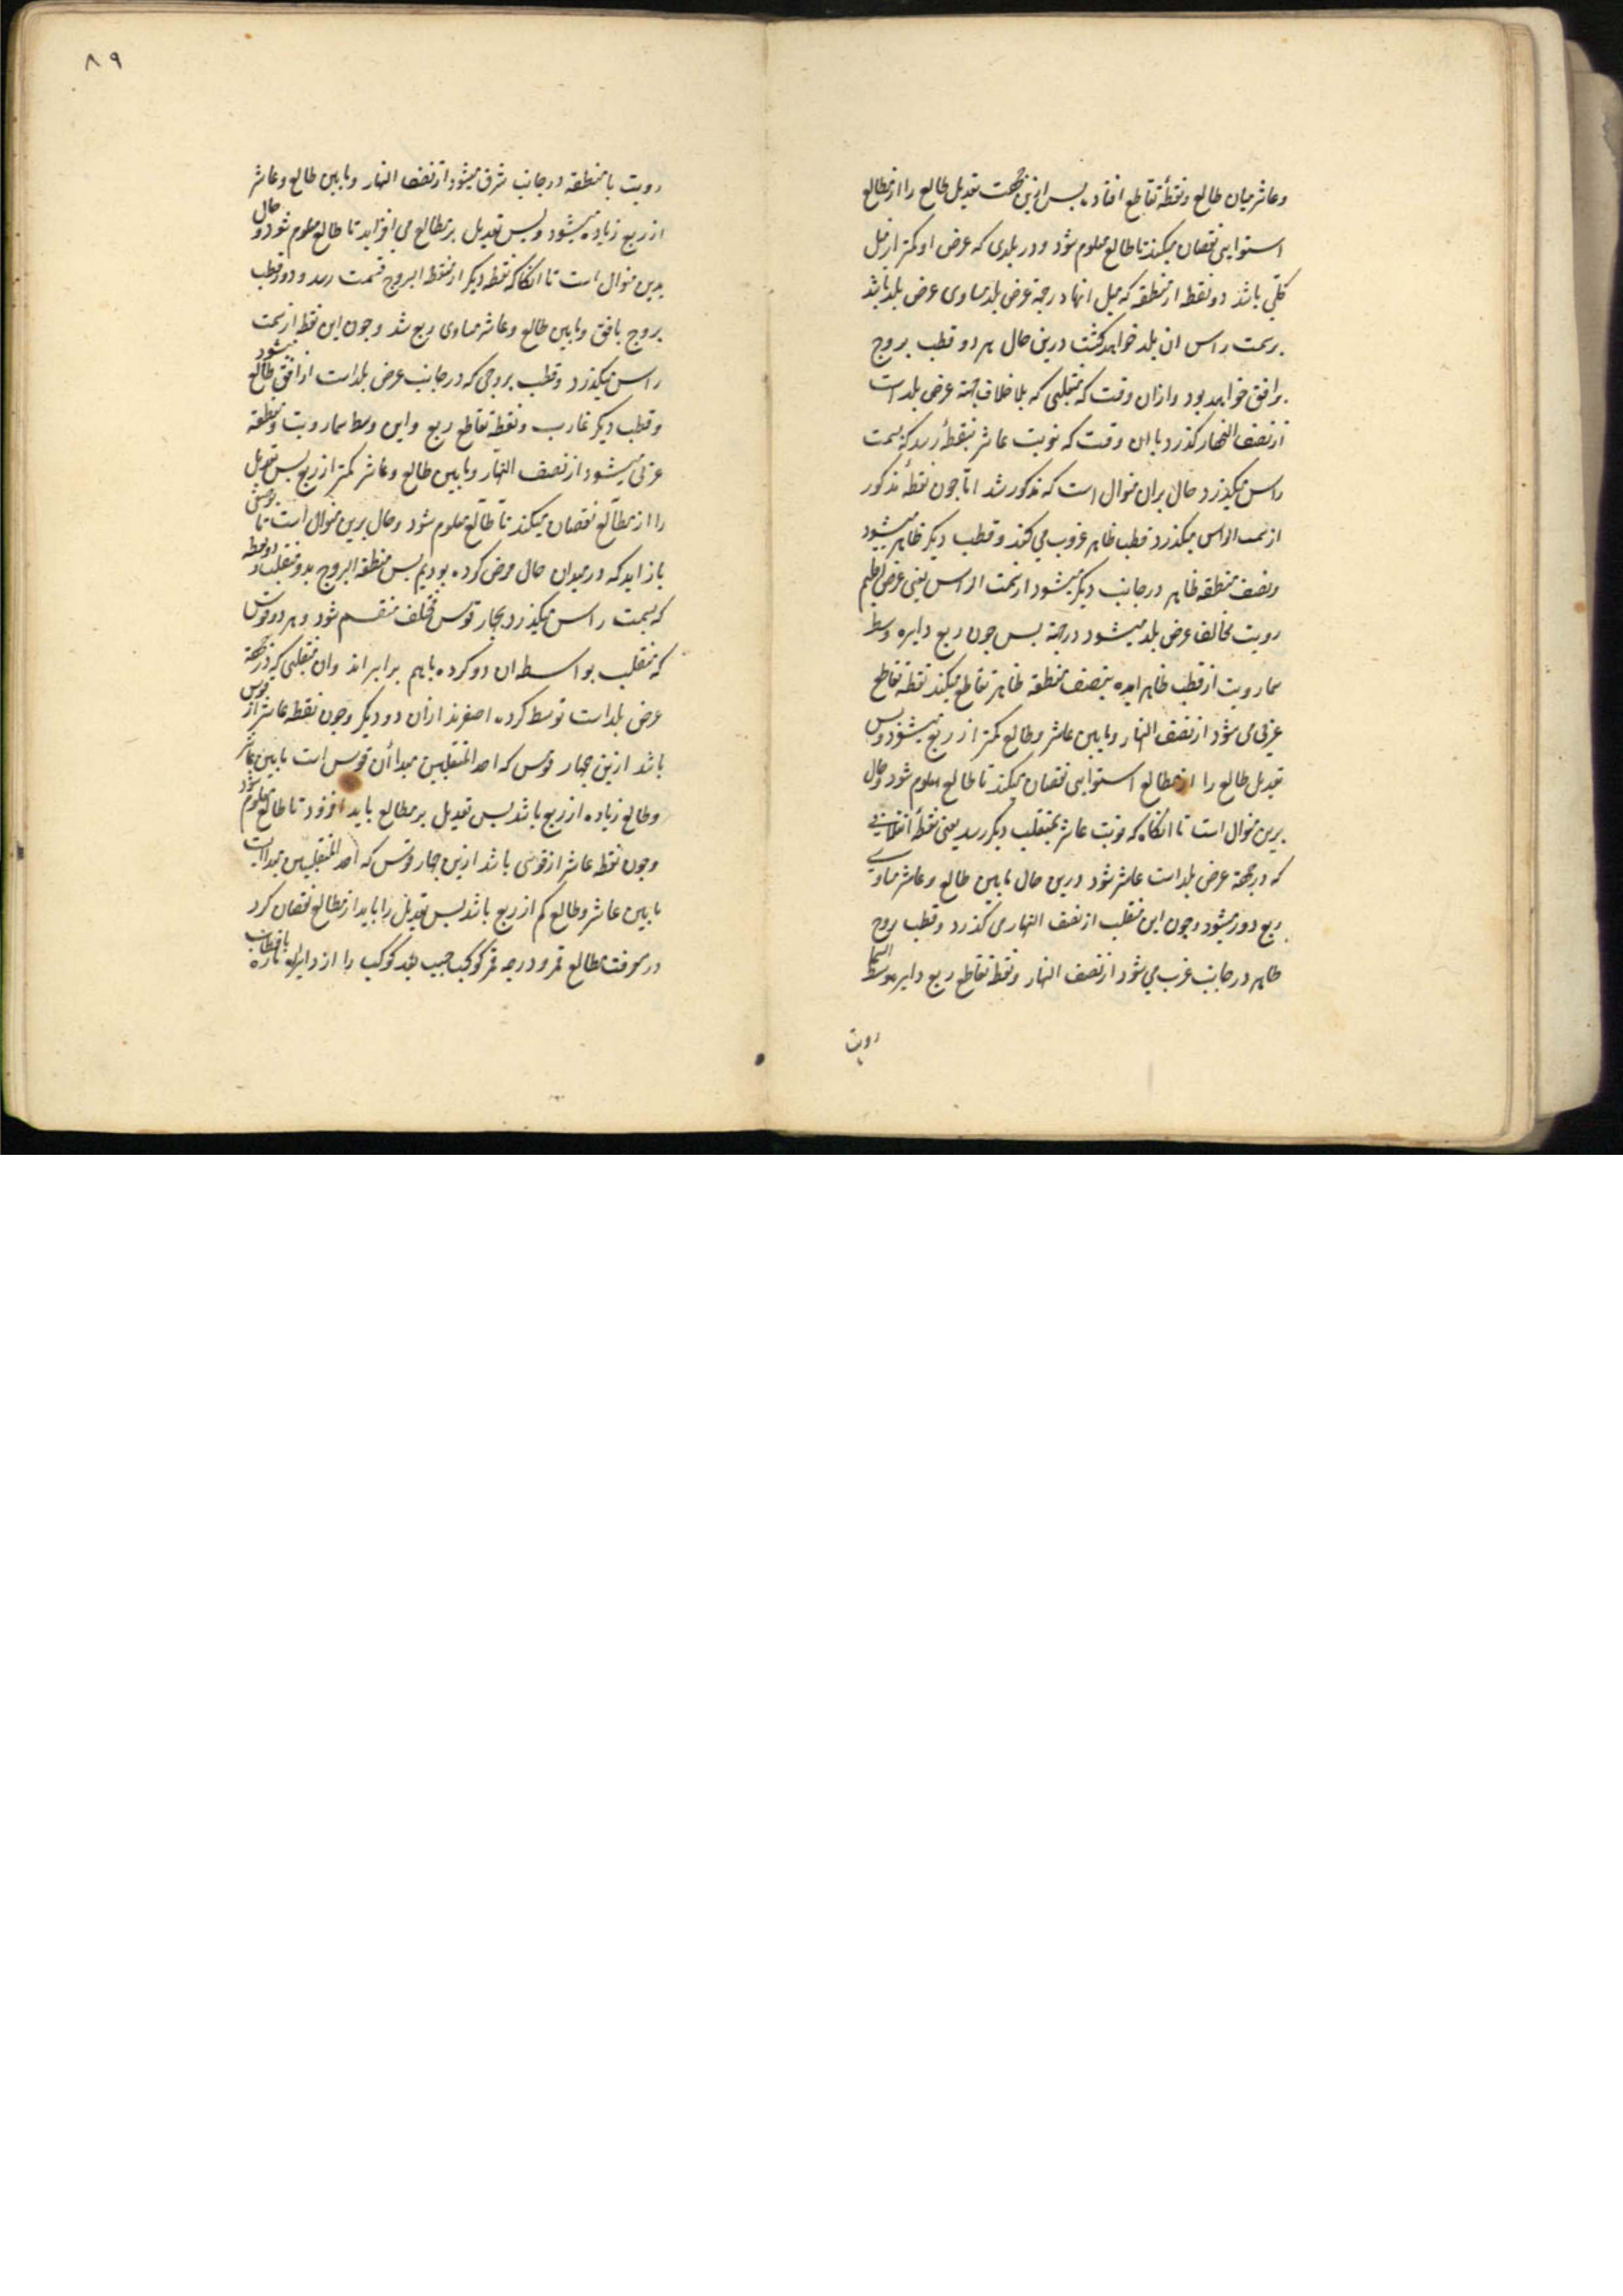 وعاشر میان طالع ونقطهٔ تقاطع افتاد پس ازین جهت تعدیل طالع را از مطالع
استوایی نقصان میکند تا طالع معلوم شود و در بلدی که عرض او کمتر از میل
کلی باشد دو نقطه از منطقه که میل انها در جهة عرض بلد مساوی عرض بلد باشد
بر سمت راس ان بلد خواهد کذشت درین حال هر دو قطب بروج
بر افق خواهد بود و ازان وقت که منقلبی که بلا خلاف جهة عرض بلد است
از نصف النهار کذرد تا ان وقت که نوبت عاشر بنقطهٔ رسد که بسمت
راس میکذرد حال بران منوال است که مذکور شد اما جون نقطهٔ مذکور
از سمت الراس میکذرد قطب ظاهر غروب می کند و قطب دیکر ظاهر میشود
ونصف منطقه ظاهر در جانب دیکر میشود از سمت الراس یعنی عرض اقلیم
رویت مخالف عرض بلد میشود در جهة پس جون ربع دایره وسط
سما رویت از قطب ظاهر امده بنصف منطقه ظاهر تقاطع میکند نقطه تقاطع
غربی می شود از نصف النهار وما بین عاشر وطالع کمتر از ربع میشود وپس
تعدیل طالع را از مطالع استوایی نقصان میکند تا طالع معلوم شود وحال
برین منوال است تا انکاه که نوبت عاشر بمنقلب دیکر رسد یعنی نقطهٔ انقلابی
که در جهة عرض بلد است عاشر شود درین حال ما بین طالع وعاشر مساوی
ربع دور میشود وجون این منقلب از نصف النهار می کذرد وقطب بروج
ظاهر در جانب غرب می شود از نصف النهار ونقطه تقاطع ربع دایره وسط السما
رویت
٨٩
رویت با منطقه در جانب شرق میشود از نصف النهار وما بین طالع وعاشر
از ربع زیاده میشود وپس تعدیل بر مطالع می افزاید تا طالع معلوم شود وحال
بدین منوال است تا انکاه که نقطه دیکر از منطقه البروج بسمت رسد و دو قطب
بروج بافق وما بین طالع وعاشر مساوی ربع شد وجون این نقطه از سمت
راس میکذرد وقطب بروجی که در جانب عرض بلد است از افق طالع میشود
وقطب دیکر غارب ونقطه تقاطع ربع واین وسط سما رویت ومنطقه
غربی میشود از نصف النهار وما بین طالع وعاشر کمتر از ربع پس تعدیل
را از مطالع نقصان میکند تا طالع معلوم شود وحال برین منوال است تا
باز اید که در مبدا ان حال فرض کرده بودیم پس منطقه البروج بدو منقلب و دو نقطه
که بسمت راس میکذرد بجهار قوس مختلف منقسم شود وهر دو قوس
که منقلب بواسطه ان دو کرده باهم برابر اند وان منقلبی که در جهة
عرض بلد است توسط کرده اصغرند ازان دو دیکر وجون نقطه عاشر از قوس
باشد ازین جهار قوس که احد المنقلبین مبدا ان قوس است ما بین عاشر
وطالع زیاده از ربع باشد پس تعدیل بر مطالع باید افزود تا طالع معلوم شود
وجون نقطه عاشر از قوسی باشد ازین جهار قوس که احد المنقلبین مبدا است
ما بین عاشر وطالع کم از ربع باشد پس تعدیل را باید از مطالع نقصان کرد
در معرفت مطالع ممر و درجه ممر کوکب جیب بعد کوکب را از دایره ماره باقطاب